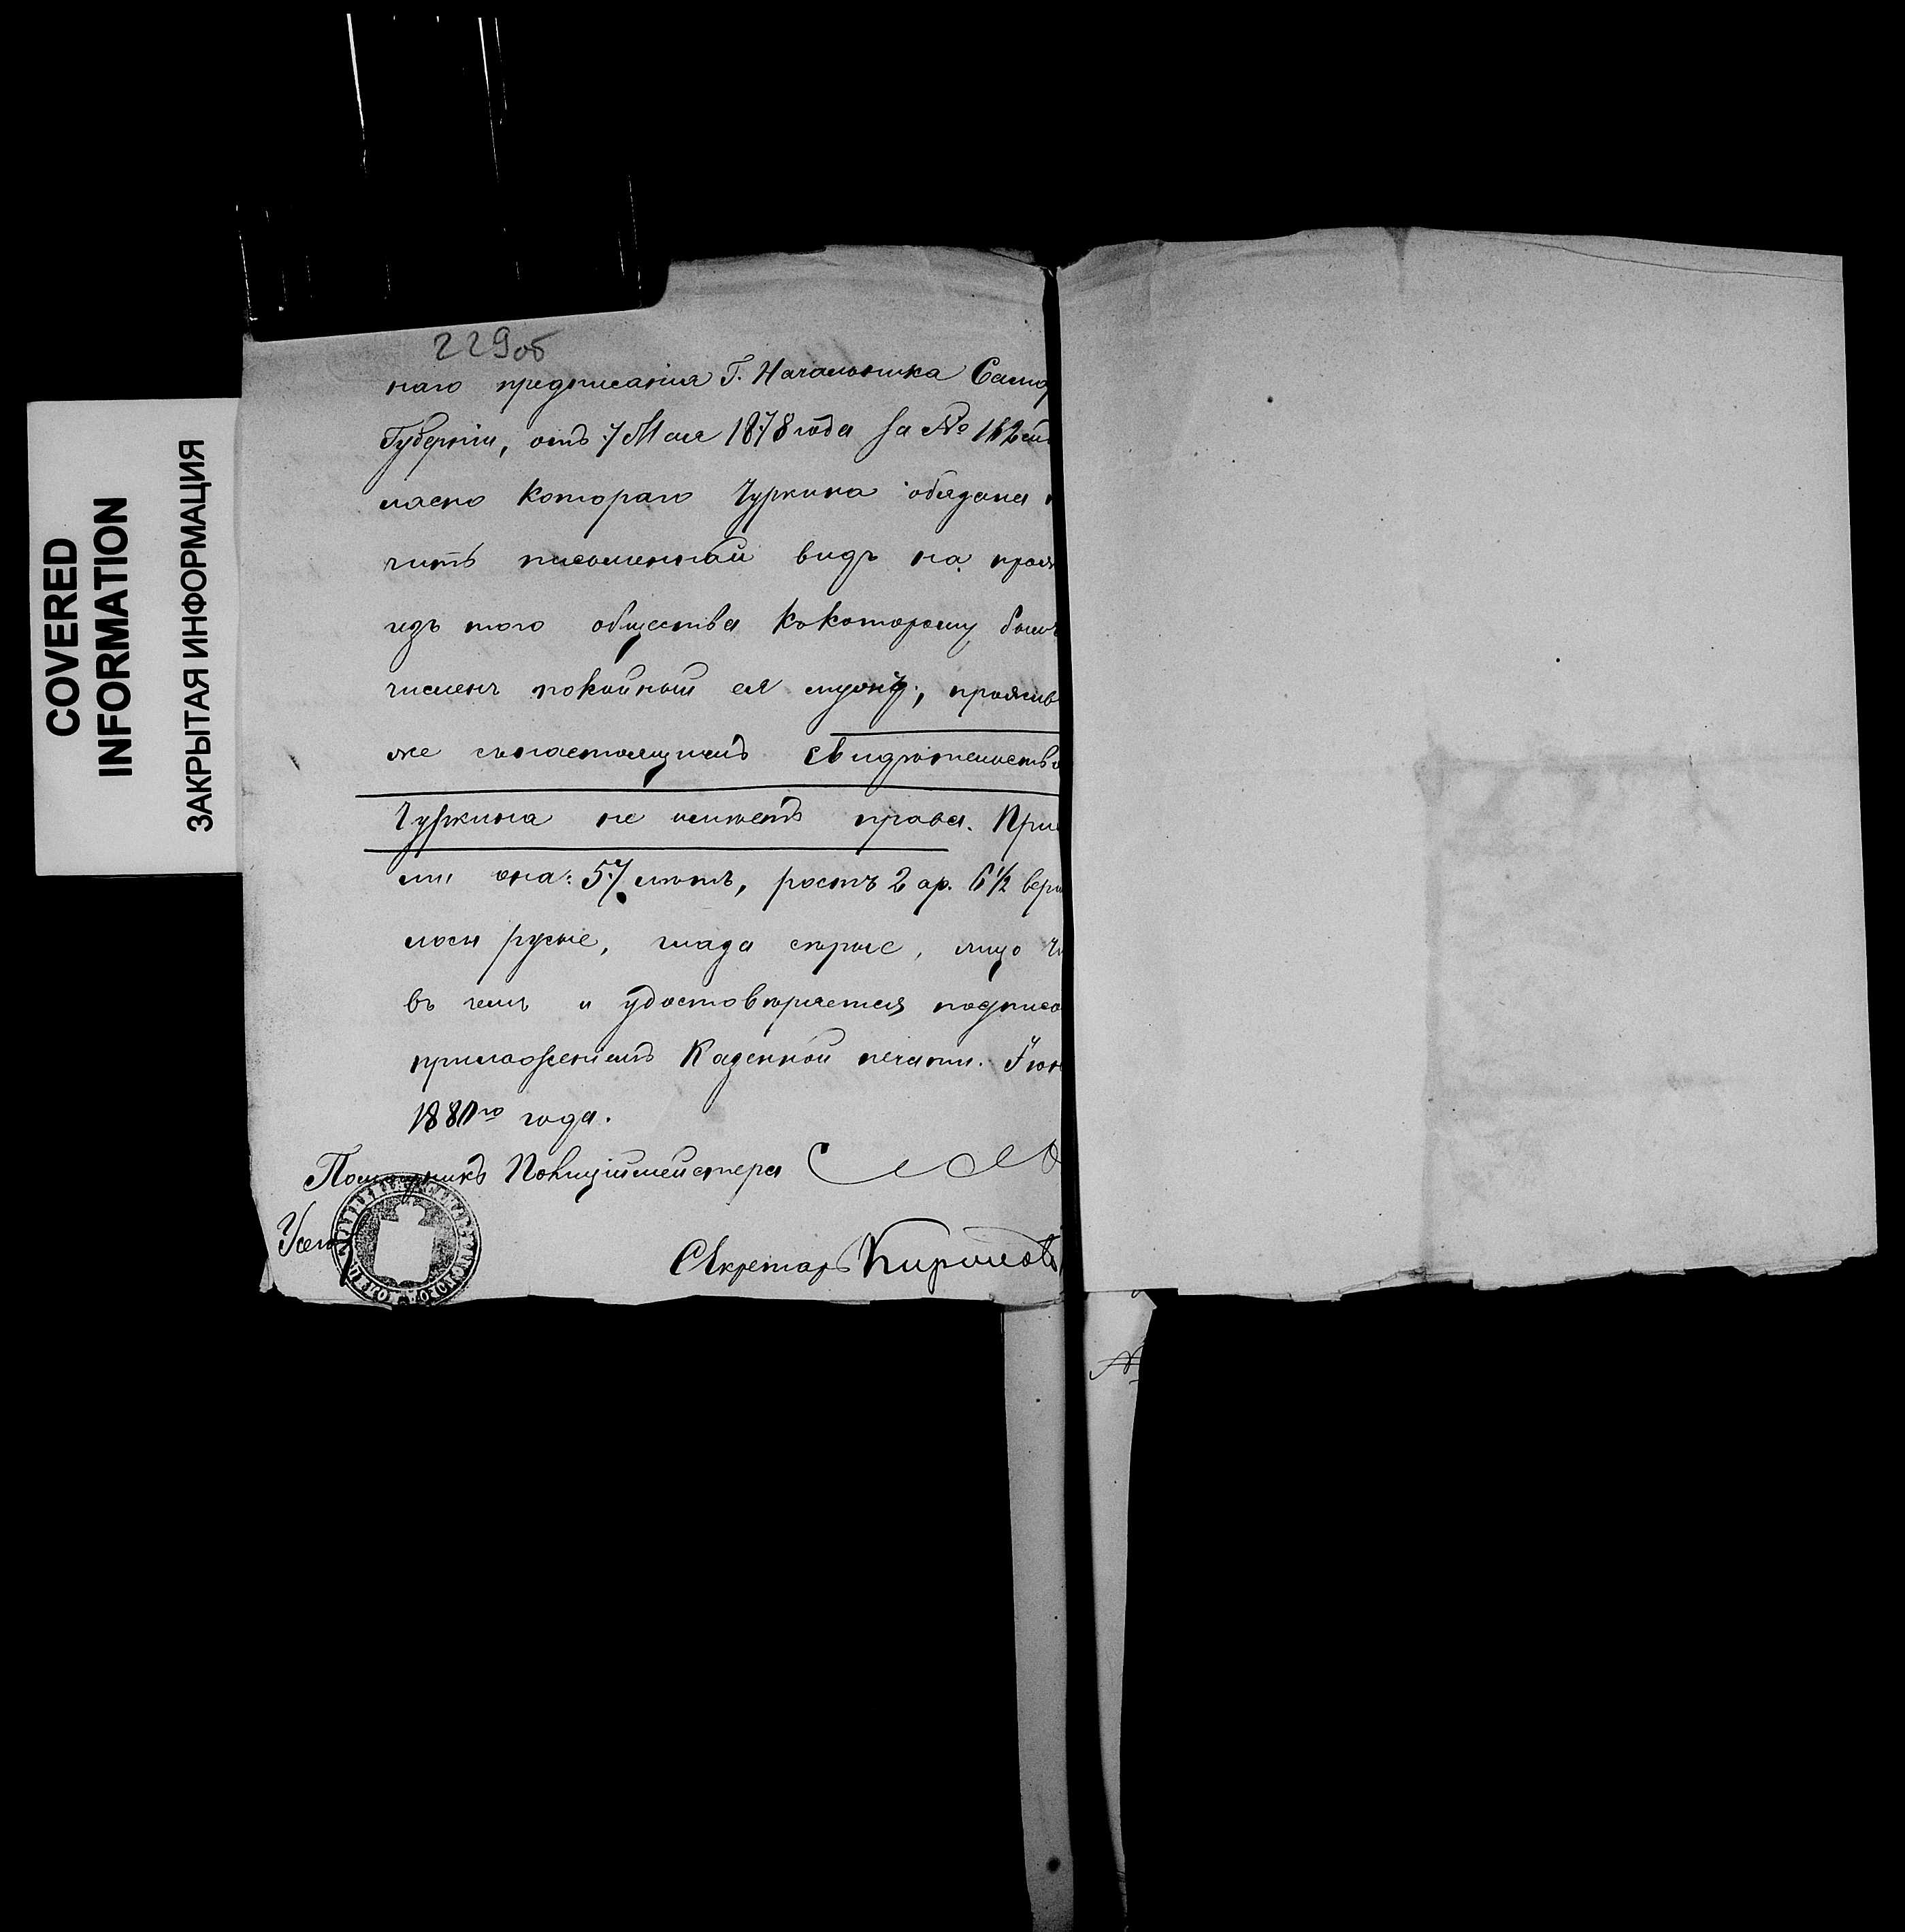 COVERED
INFORMATION
ЗАКРЫТАЯ ИНФОРМАЦИЯ
229об
наго предписанія Г. Начальника Самар
Губерніи, отъ 7 Мая 1878 года за №
ласно котораго Чуркина обязана
чить письменный видъ на прож
изъ того общества къ которому былъ
численъ покойный ея мужъ, прожив
же съ настоящимъ свидѣтельство
Чуркина не имѣетъ права. При
ми она: 57 лѣтъ, ростъ 2 ар. 6 1/2 верш
лосы русые, глаза сѣрые, лицо чи
въ чемъ и удостовѣряется подписо
приложеніемъ Казенной печати. Іюн
1880го года.
Помощникъ Полиціймейстера
Секретарь Кириловъ
№